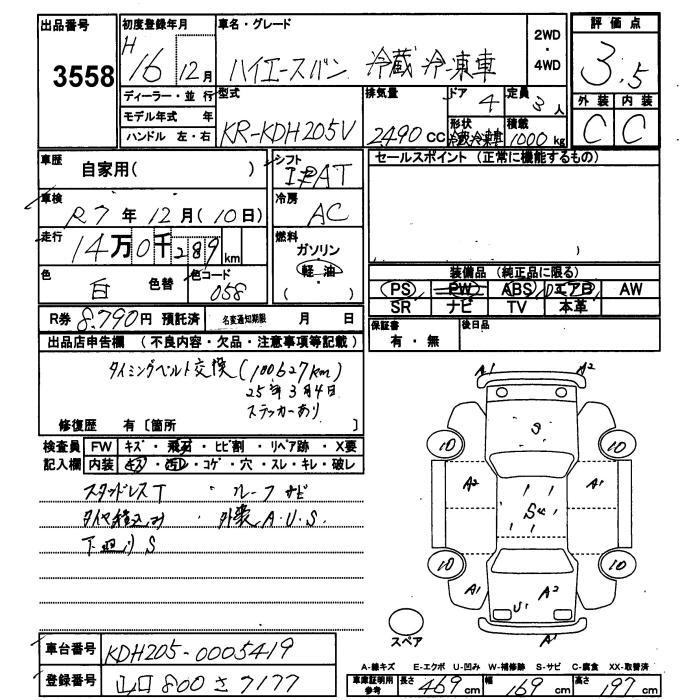 出品番号 3558
初度登録年月 H 16 12月
車名・グレード ハイエースバン 冷蔵冷凍車
2WD・4WD
評価点 3.5
外装 C 内装 C
ディーラー・並行
モデル年式 年
ハンドル 左・右
型式 KR-KDH205V
排気量 2490 CC
ドア 4
定員 3人
形状 冷蔵冷凍車
積載 1000kg
車歴 自家用( )
シフト AT
セールスポイント (正常に機能するもの)
車検 R7年12月(10日)
冷房 AC
走行 14万0千289km
燃料 ガソリン 軽油 ( )
色 白 色替 色コード 058
装備品 (純正品に限る)
PS PW ABS エアB AW
SR ナビ TV 本革
R券 8,790円 預託済 名変通知期限 月 日
保証書 有・無 後日品
出品店申告欄 (不良内容・欠品・注意事項等記載)
タイミングベルト交換(100627km)
25年3月4日
ステッカーあり
修復歴 有〔箇所 〕
検査員 FW キズ・飛石・ヒビ割・リペア跡・X要
記入欄 内装 キズ・凹・コゲ・穴・スレ・キレ・破レ
スタッドレスT ルーフサビ
タイヤ積込み 外装A.U.S.
下廻りS
A1 A2
S
10 10
A2 A1
S
10 10
A1 U1 A2 A1
A1
スペア
車台番号 KDH205-0005419
登録番号 山口800さ7177
A-線キズ E-エクボ U-凹み W-補修跡 S-サビ C-腐食 XX-取替済
車庫証明用参考 長さ 469cm 幅 169cm 高さ 197cm